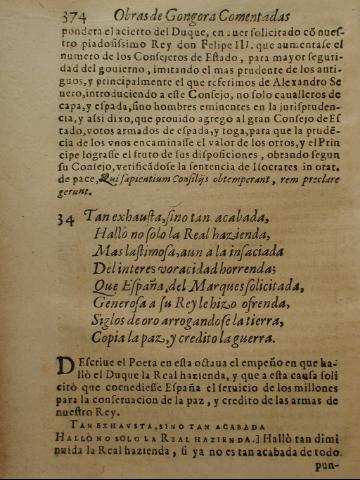 374 Obras de Gongora Comentadas
pondera el acierto del Duque, en auer solicitado cõ nues-
tro piadosissimo Rey don Felipe III. que aumentase el
numero de los Consejeros de Estado, para mayor seguri-
dad del gouierno, imitando el mas prudente de los anti-
guos, y principalmente el que referimos de Alexandro Se
uero, introduciendo a este Consejo, no solo caualleros de
capa, y espada, sino hombres eminentes en la jurispruden-
cia, y assi dixo, que prouido agregò al gran Consejo de Es
tado, votos armados de espada, y toga, para que la prudẽ-
cia de los vnos encaminasse el valor de los otros, y el Prin
cipe lograsse el fruto de sus disposiciones, obrando segun
su Consejo, verificãdose la sentencia de Isocrates in orat.
de pace, Qui sapientium Consilijs obtemperant, rem preclare
gerunt.
34 Tan exhausta, sino tan acabada,
Hallò no solo la Real hazienda,
Mas lastimosa, aun a la insaciada
Del interes voracidad horrenda;
Que España, del Marques solicitada,
Generosa a su Rey le hizo ofrenda,
Siglos de oro arrogandose la tierra,
Copia la paz, y credito la guerra.
DEscriue el Poeta en esta octaua el empeño en que ha-
llò el Duque la Real hazienda, y que a esta causa soli
citò que concediesse España el seruicio de los millones
para la conseruacion de la paz, y credito de las armas de
nuestro Rey.
TAN EXHAVSTA, SINO TAN ACABADA
HALLÒ NO SOLO LA REAL HAZIENDA.] Hallò tan dimi
nuida la Real hazienda, si ya no es tan acabada de todo
pun-